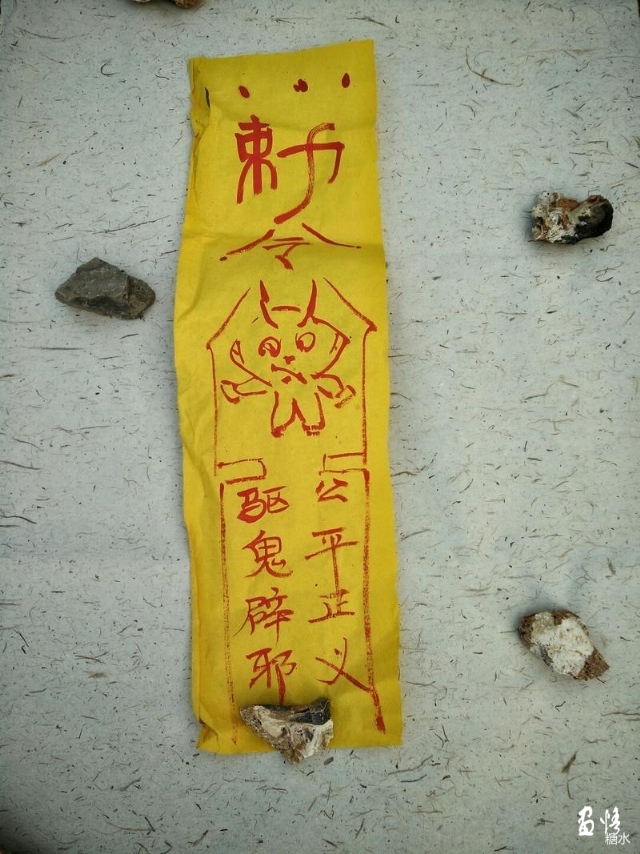 勅令
公平正义
驱鬼辟邪
糖水